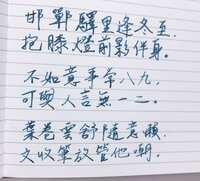 邯鄲驛里逢冬至
抱膝燈前影伴身。
不如意事常八九,
可與人言無一二。
葉卷雲舒隨意賴
文收筆放管他嘲。